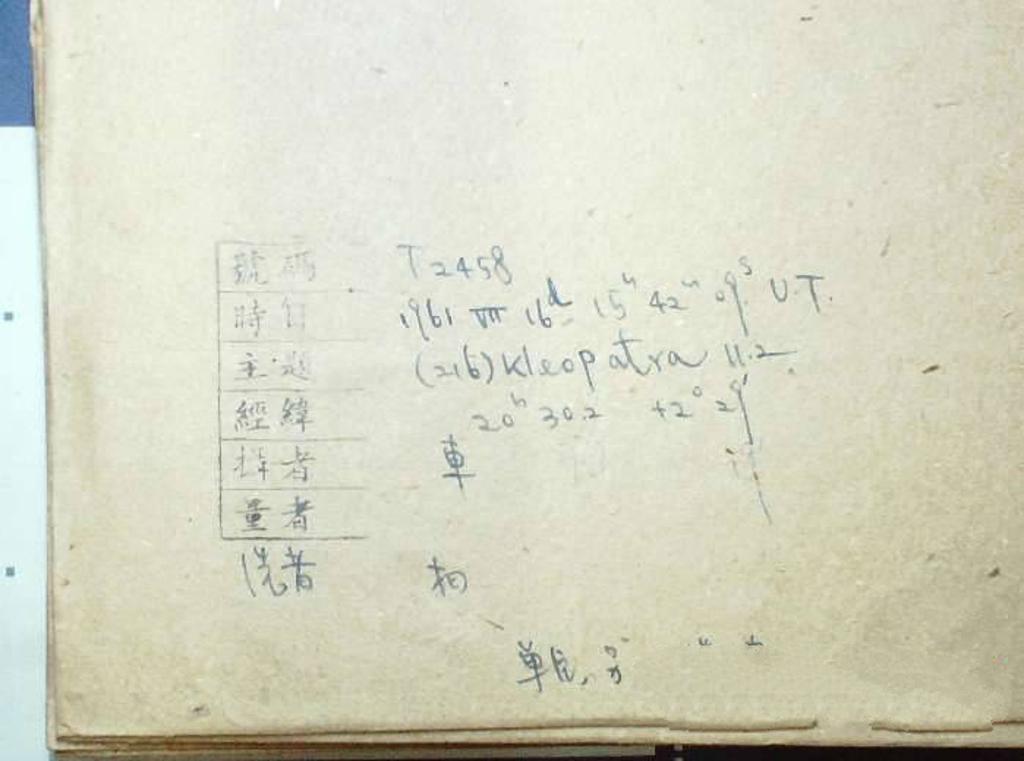 號碼 T2458
時日 1961 VIII 16d 15h 42m 09s U.T.
主題 (216) Kleopatra 11.2
經緯 20h 30.2 +2° 29'
攝者 車
量者
洗者 柏